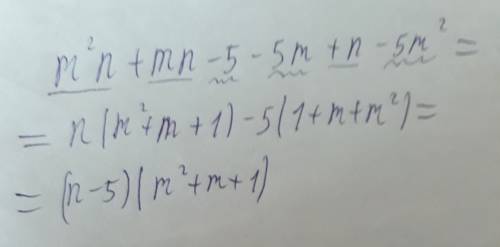 m²n + mn - 5 - 5m + n - 5m² =
= n(m²+m+1) - 5(1+m+m²) =
= (n-5)(m²+m+1)